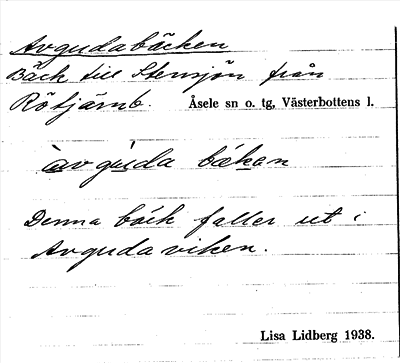 Avgudabäcken
Bäck till Stensjön från
Rötjärnb. Åsele sn o. tg, Västerbottens l.
àv gùda bäkan
Denna bäck faller ut i
Avgudaviken.
Lisa Lidberg 1938.